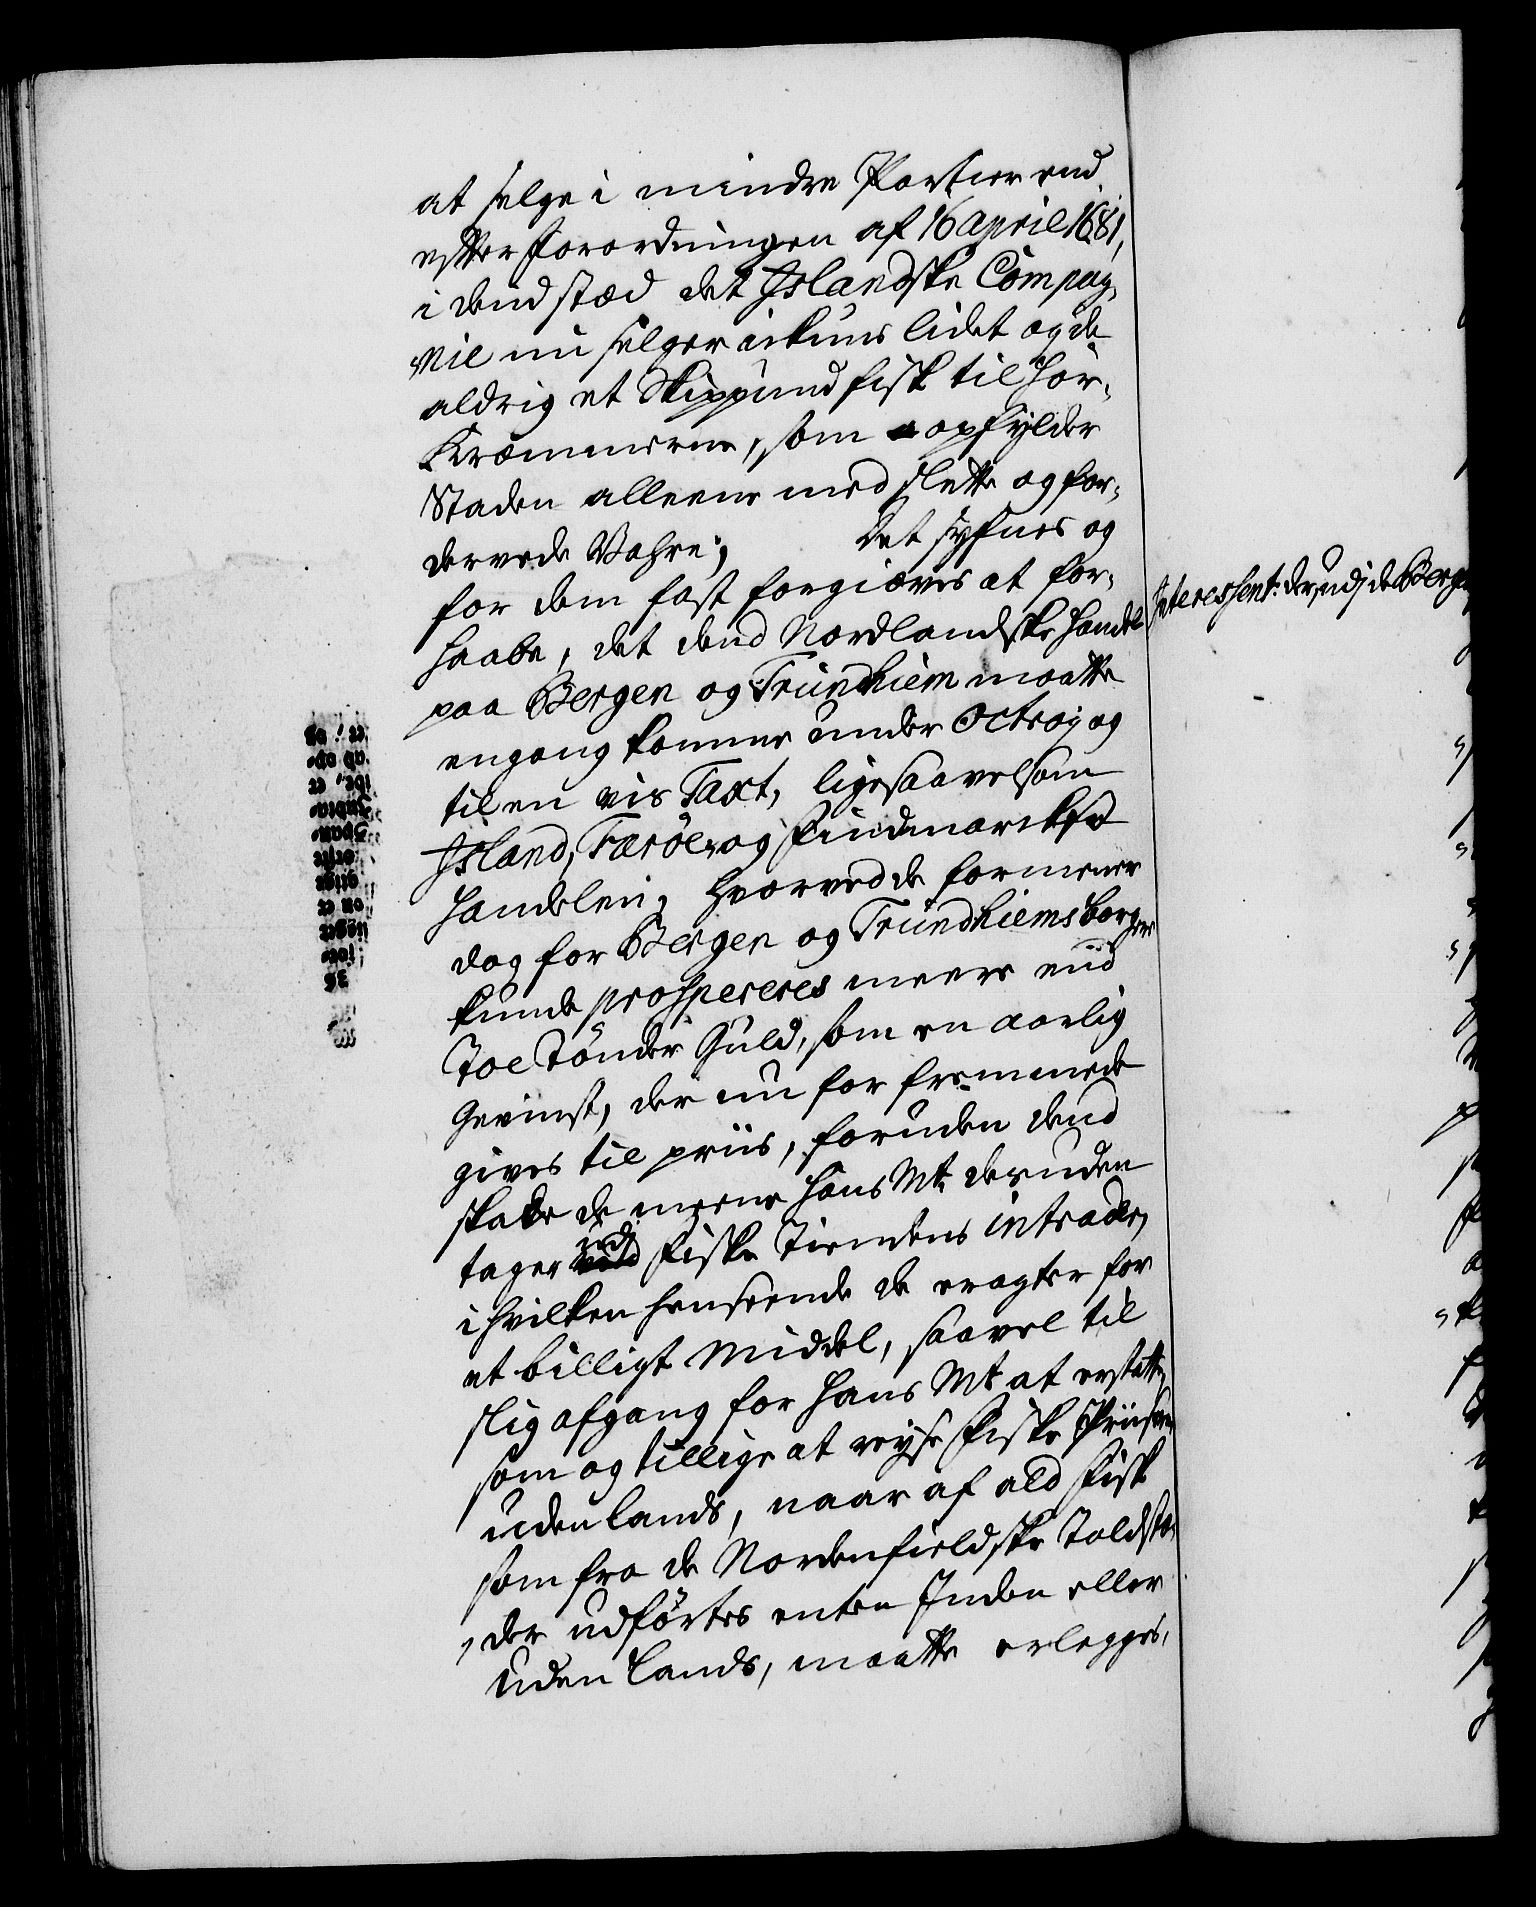 at selge i mindre Partier end
efter Forordningen af 16 april 1681,
i dend stæd det Islandske Compag,
nie nu selger ickuns lidet og de
aldrig et Skippund fisk til hör,
Kræmmerne, som opfylder
Staden alleene med slette og for,
dervede Vahre; Det syfnes og
for dem fast forgiæves at for,
haabe, det dend Nordlandske handel
paa Bergen og Trundhiem maatte
engang komme under Octroj og
til en vis Taxt, ligesaavelsom
Island, Færöe, og Findmarckse
handelen; hvorved de formener
dog for Bergen og Trundhiems borger
kunde prospereres meere end
Toe Tönder Guld, som en aarlig
Gevinst, der nu for fremmede
gives til priis, foruden dend
skade de meene hans Mt. desuden
tager udj Fiske Tiendens intrader,
i hvilken henseende de eragter for
et billigt Middel, saavel til
slig afgang for hans Mt. at erstatte,
som og tillige at reyse Fiske Priisen
uden lands, naar af ald Fisk
som fra de Nordenfieldske Toldstæ,
der udförtes enten Inden eller
uden lands, maatte erlegges,
Interessent: der, udj de Berge